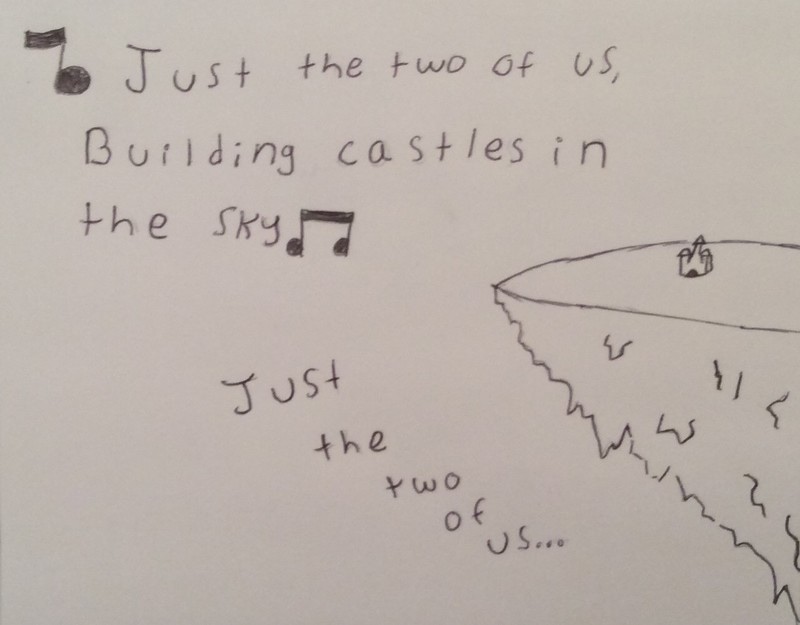 Just the two of us,
Building castles in
the sky
Just
the
two
of
us...